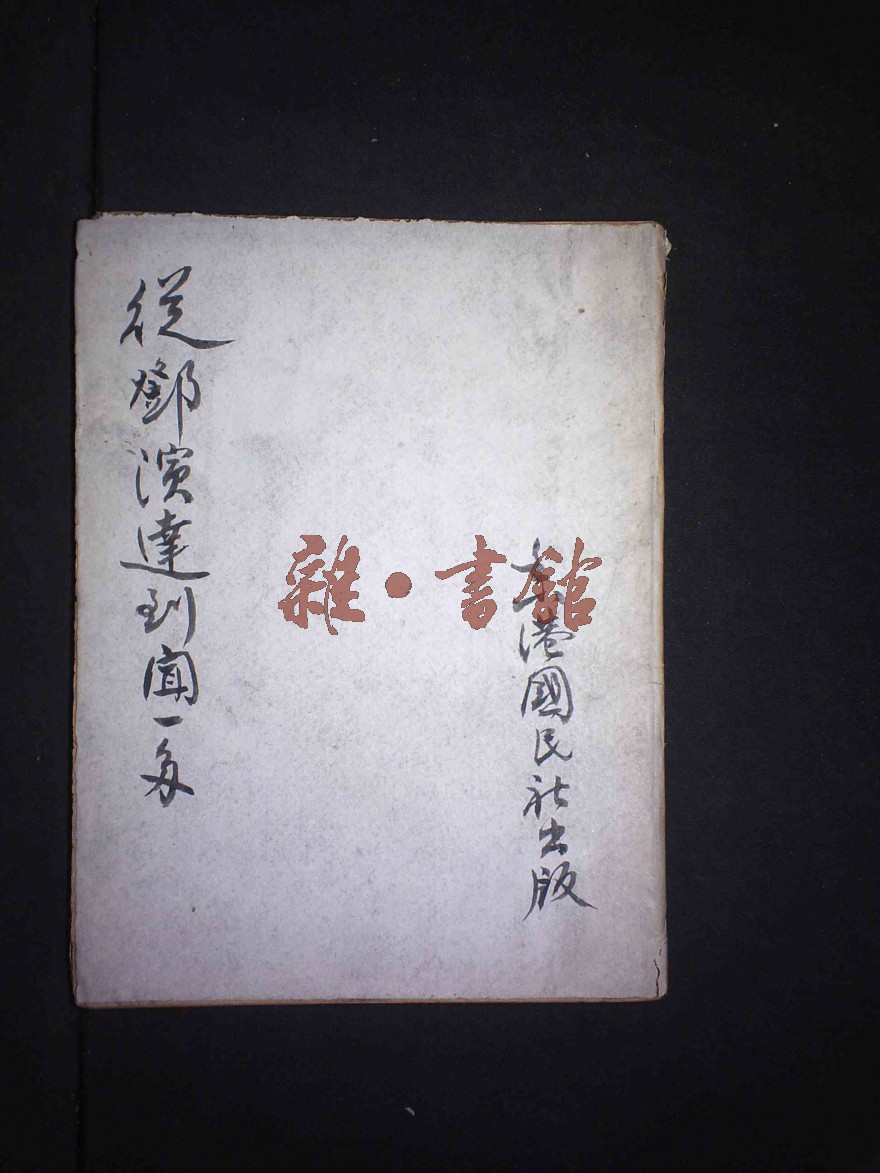 從鄧演達到聞一多
香港國民社出版
雜·書館